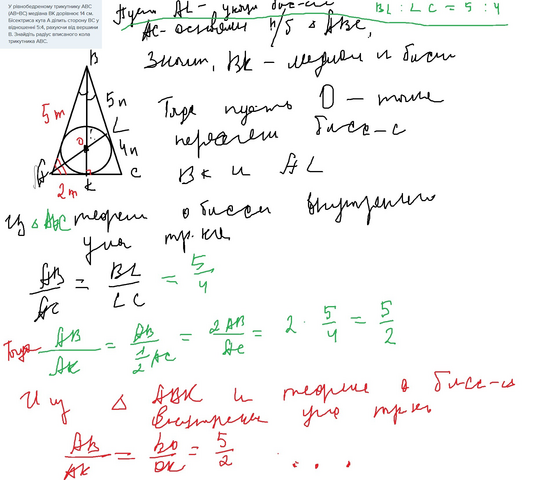 У рівнобедреному трикутнику ABC
(AB=BC) медіана BK дорівнює 14 см.
Бісектриса кута A ділить сторону BC у
відношенні 5:4, рахуючи від вершини
B. Знайдіть радіус вписаного кола
трикутника ABC.
Пусть AL -
BL : LC = 5 : 4
AC - основан р/б △ ABC,
Значит, BK - медиан и бисс
B
5m
5n
L
O
4n
A
K
C
2m
Тогда пусть O - точка
пересечен бисс-с
BK и AL
Из △ ABC теорем о биссек внутреннего
угла тр-ка
AB/AC = BL/LC = 5/4
Тогда AB/AK = AB/(1/2 AC) = 2AB/AC = 2 · 5/4 = 5/2
И из △ ABK и теореме о бисс-се
внутренн угла тр-ка
AB/AK = BO/OK = 5/2 . . .